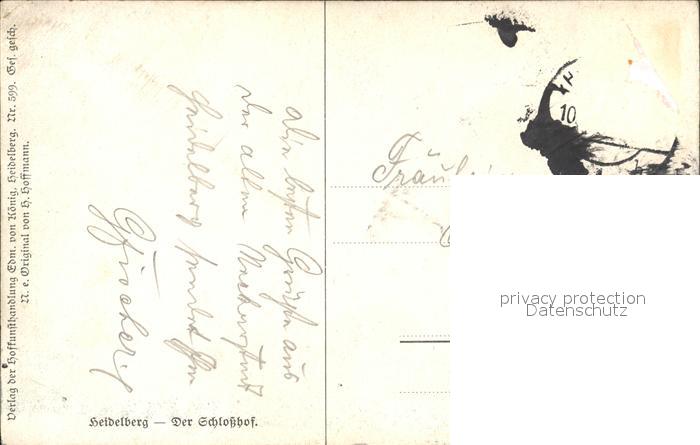 Verlag der Hofkunsthandlung Edm. von König, Heidelberg. Nr. 599. Ges. gesch.
N. e. Original von H. Hoffmann.
Die besten Grüße aus
der alten Neckarstadt
Heidelberg sendet
Heidelberg — Der Schloßhof.
10
Fräulein
privacy protection
Datenschutz